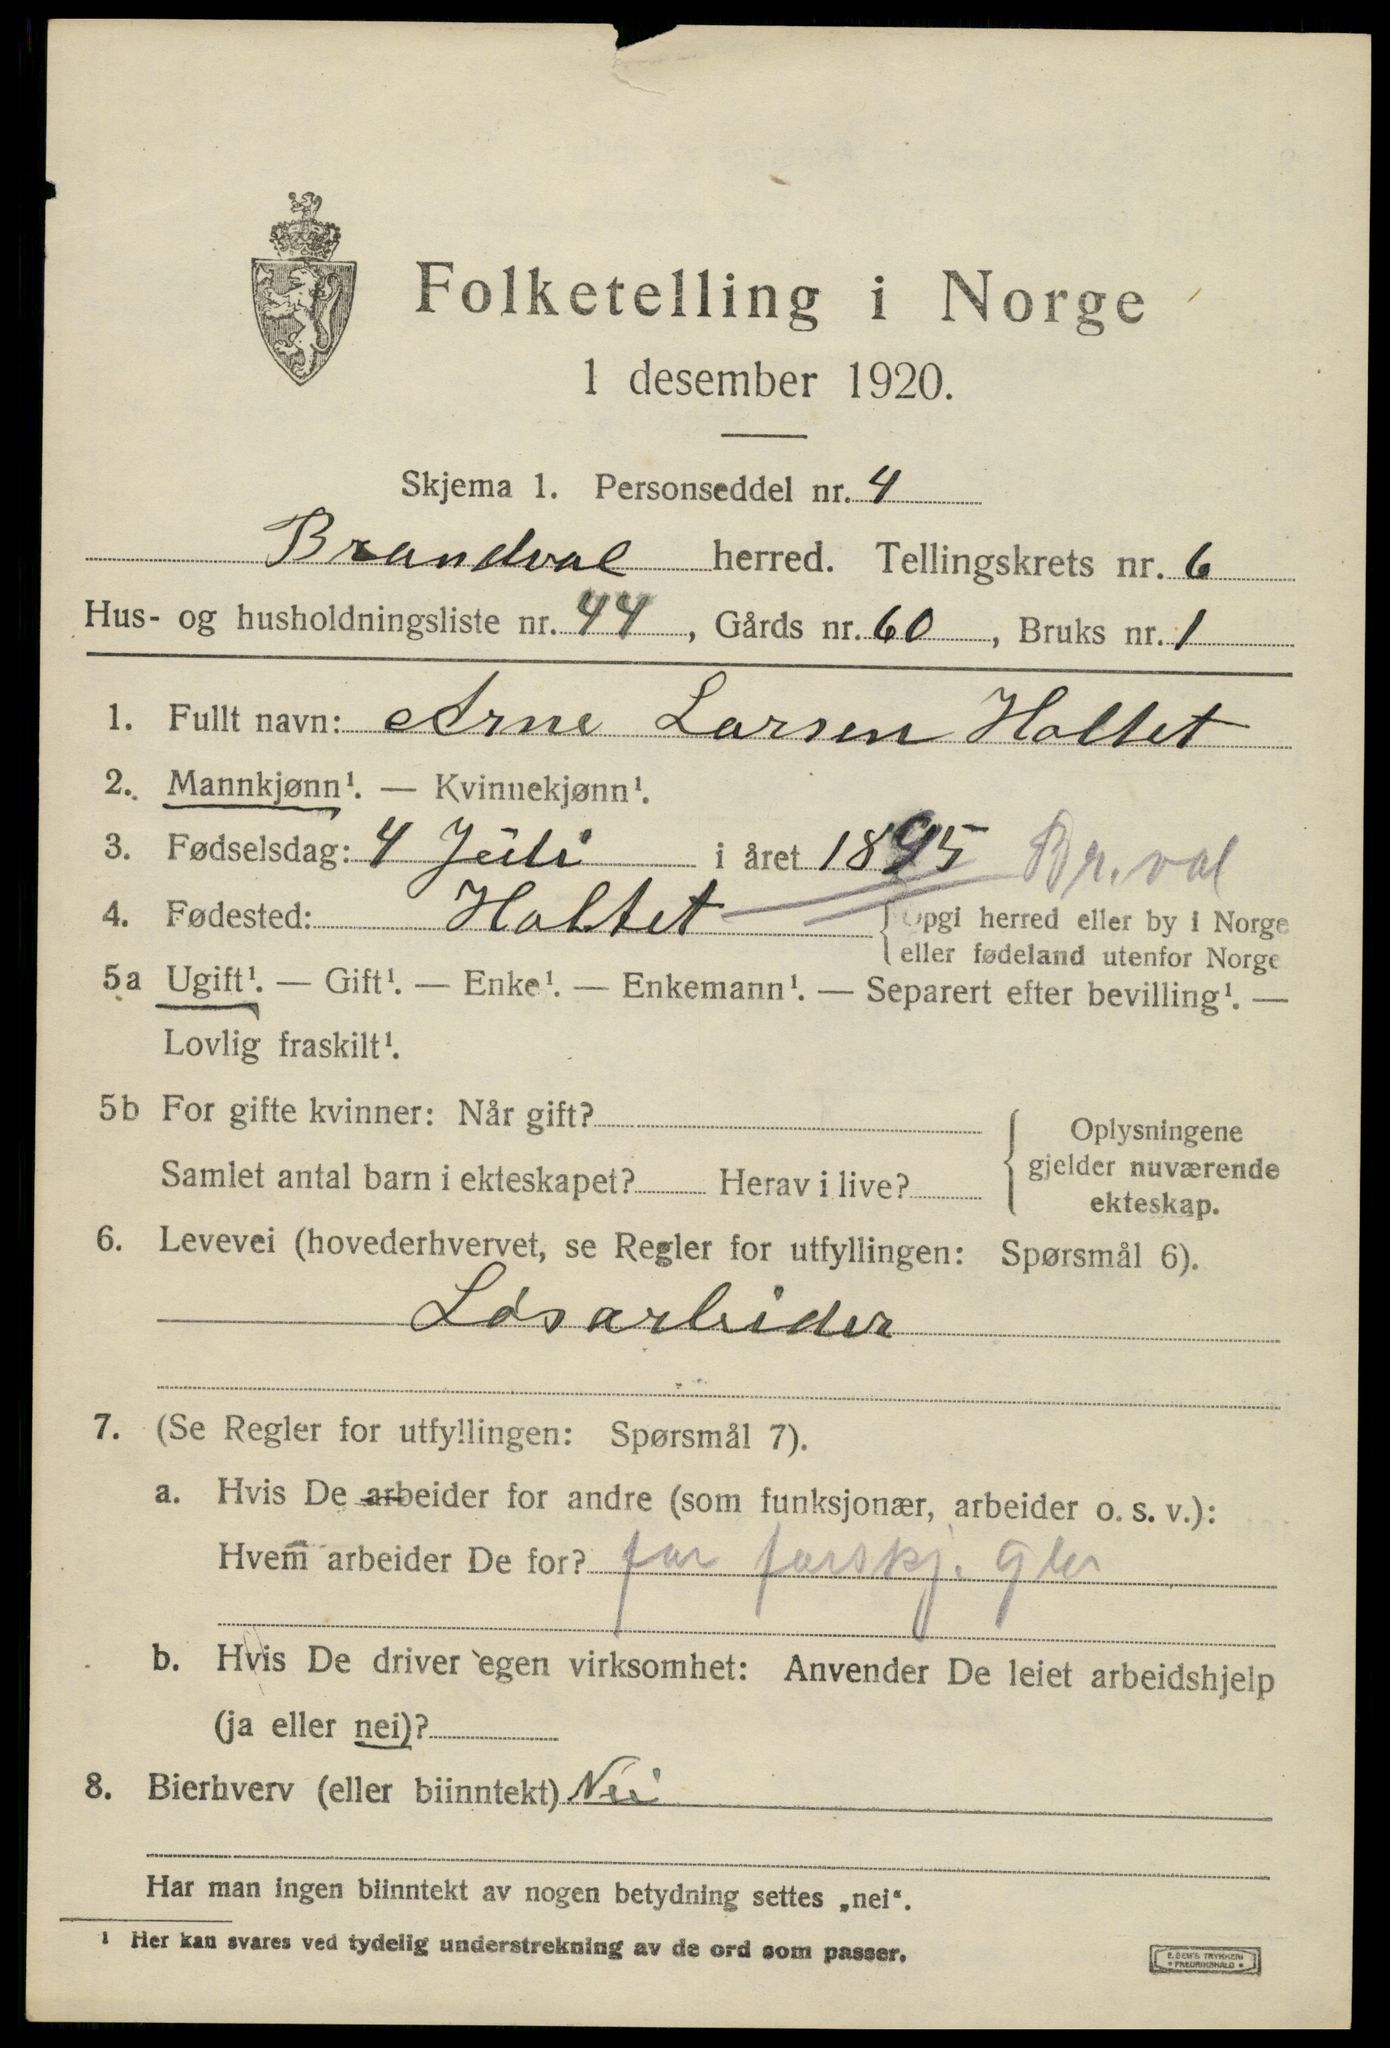 Folketelling i Norge
1 desember 1920.
Skjema 1. Personseddel nr. 4
Brandval herred. Tellingskrets nr. 6
Hus- og husholdningsliste nr. 44, Gårds nr. 60, Bruks nr. 1
1. Fullt navn: Arne Larsen Holtet
2. Mannkjønn¹. — Kvinnekjønn¹.
3. Fødselsdag: 4 Juli i året 1895 Br.val
4. Fødested: Holtet {Opgi herred eller by i Norge
eller fødeland utenfor Norge
5a Ugift¹. — Gift¹. — Enke¹. — Enkemann¹. — Separert efter bevilling¹. —
Lovlig fraskilt¹.
5b For gifte kvinner: Når gift?
Samlet antal barn i ekteskapet? Herav i live?
{ Oplysningene
gjelder nuværende
ekteskap.
6. Levevei (hovederhvervet, se Regler for utfyllingen: Spørsmål 6).
Løsarbeider
7. (Se Regler for utfyllingen: Spørsmål 7).
a. Hvis De arbeider for andre (som funksjonær, arbeider o. s. v.):
Hvem arbeider De for? for forskj.
b. Hvis De driver egen virksomhet: Anvender De leiet arbeidshjelp
(ja eller nei)?
8. Bierhverv (eller biinntekt) Nei
Har man ingen biinntekt av nogen betydning settes „nei“.
¹ Her kan svares ved tydelig understrekning av de ord som passer.
E. SEM'S TRYKKERI
* FREDRIKSHALD *